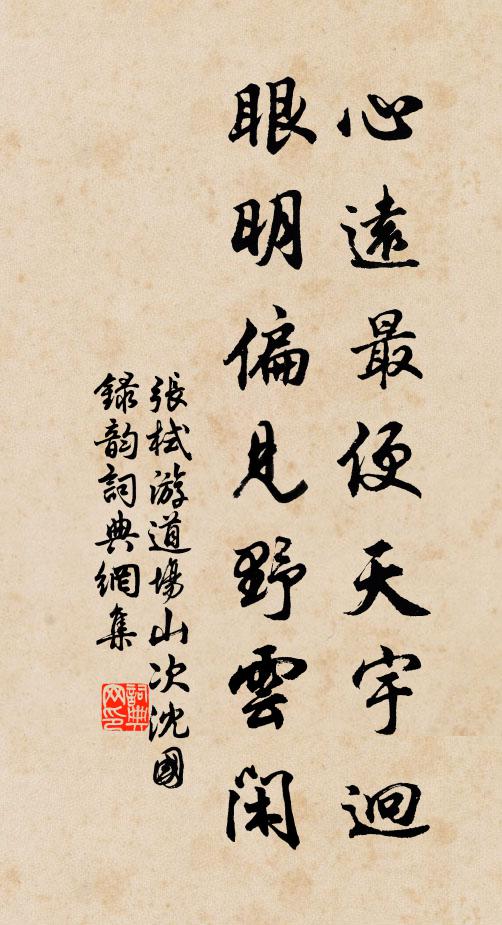 心遠最便天宇迥
眼明偏見野雲閑
張栻游道場山次沈國
錄韵詞典網集
詞典
网印